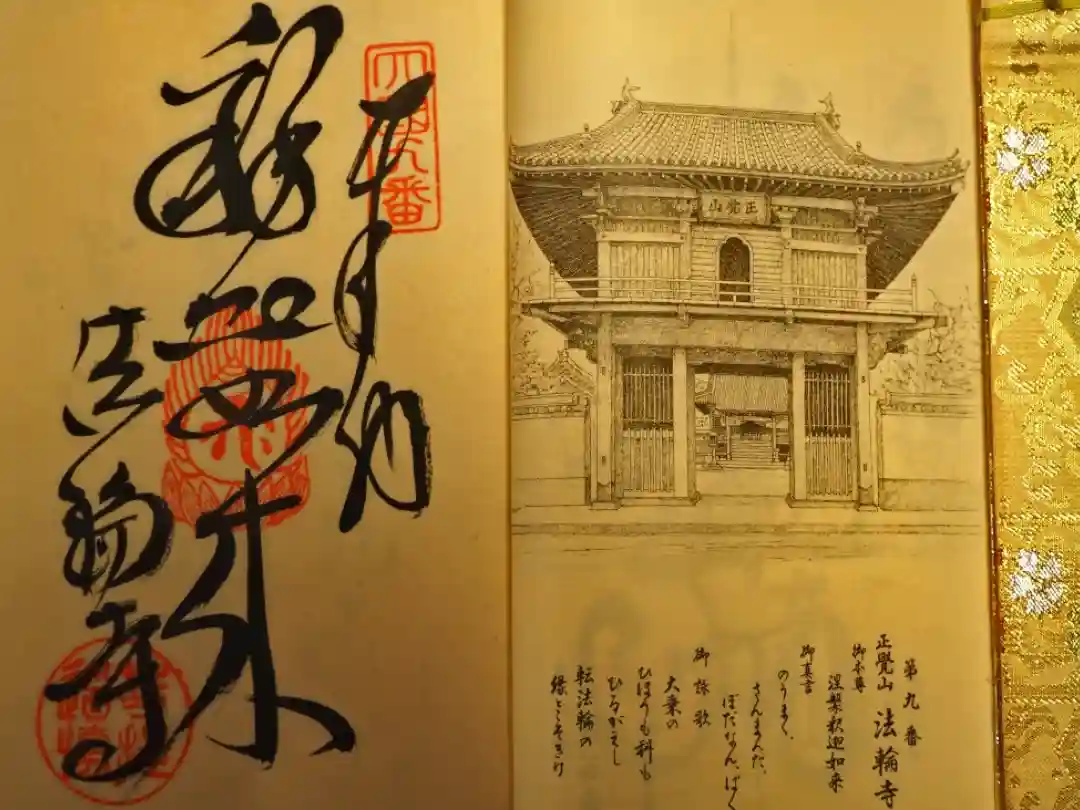 正覺山
第九番
正覺山 法輪寺
御本尊
涅槃釈迦如来
御真言
のうまく、
さんまんだ、
ぼだなん、ばく
御詠歌
大乗の
ひほうも科も
ひるがえし
転法輪の
縁とこそきけ
四國九番
釈迦如来
法輪寺